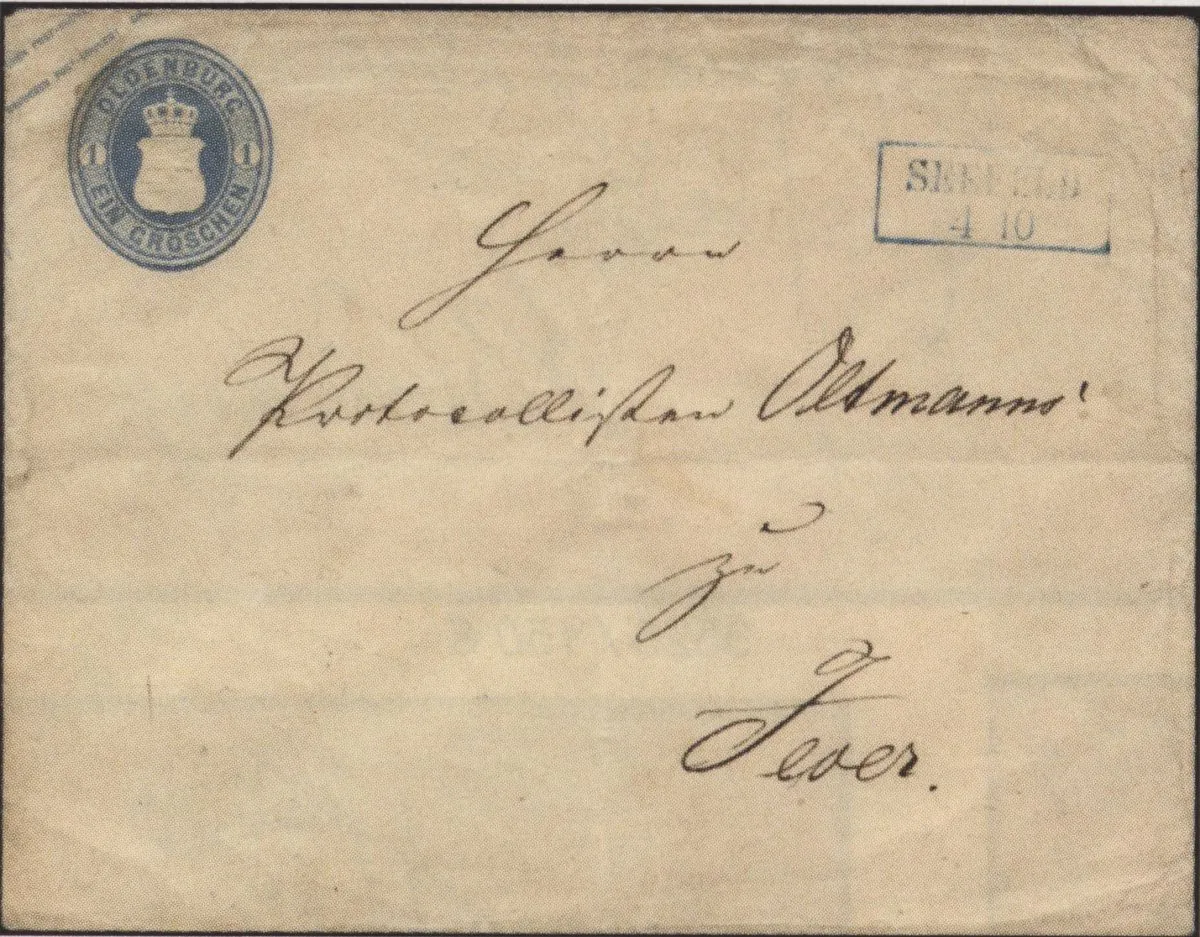 OLDENBURG
1 1
EIN GROSCHEN
SEEFELD
4 10
Herrn
Protocollisten Oltmanns
zu
Jever.